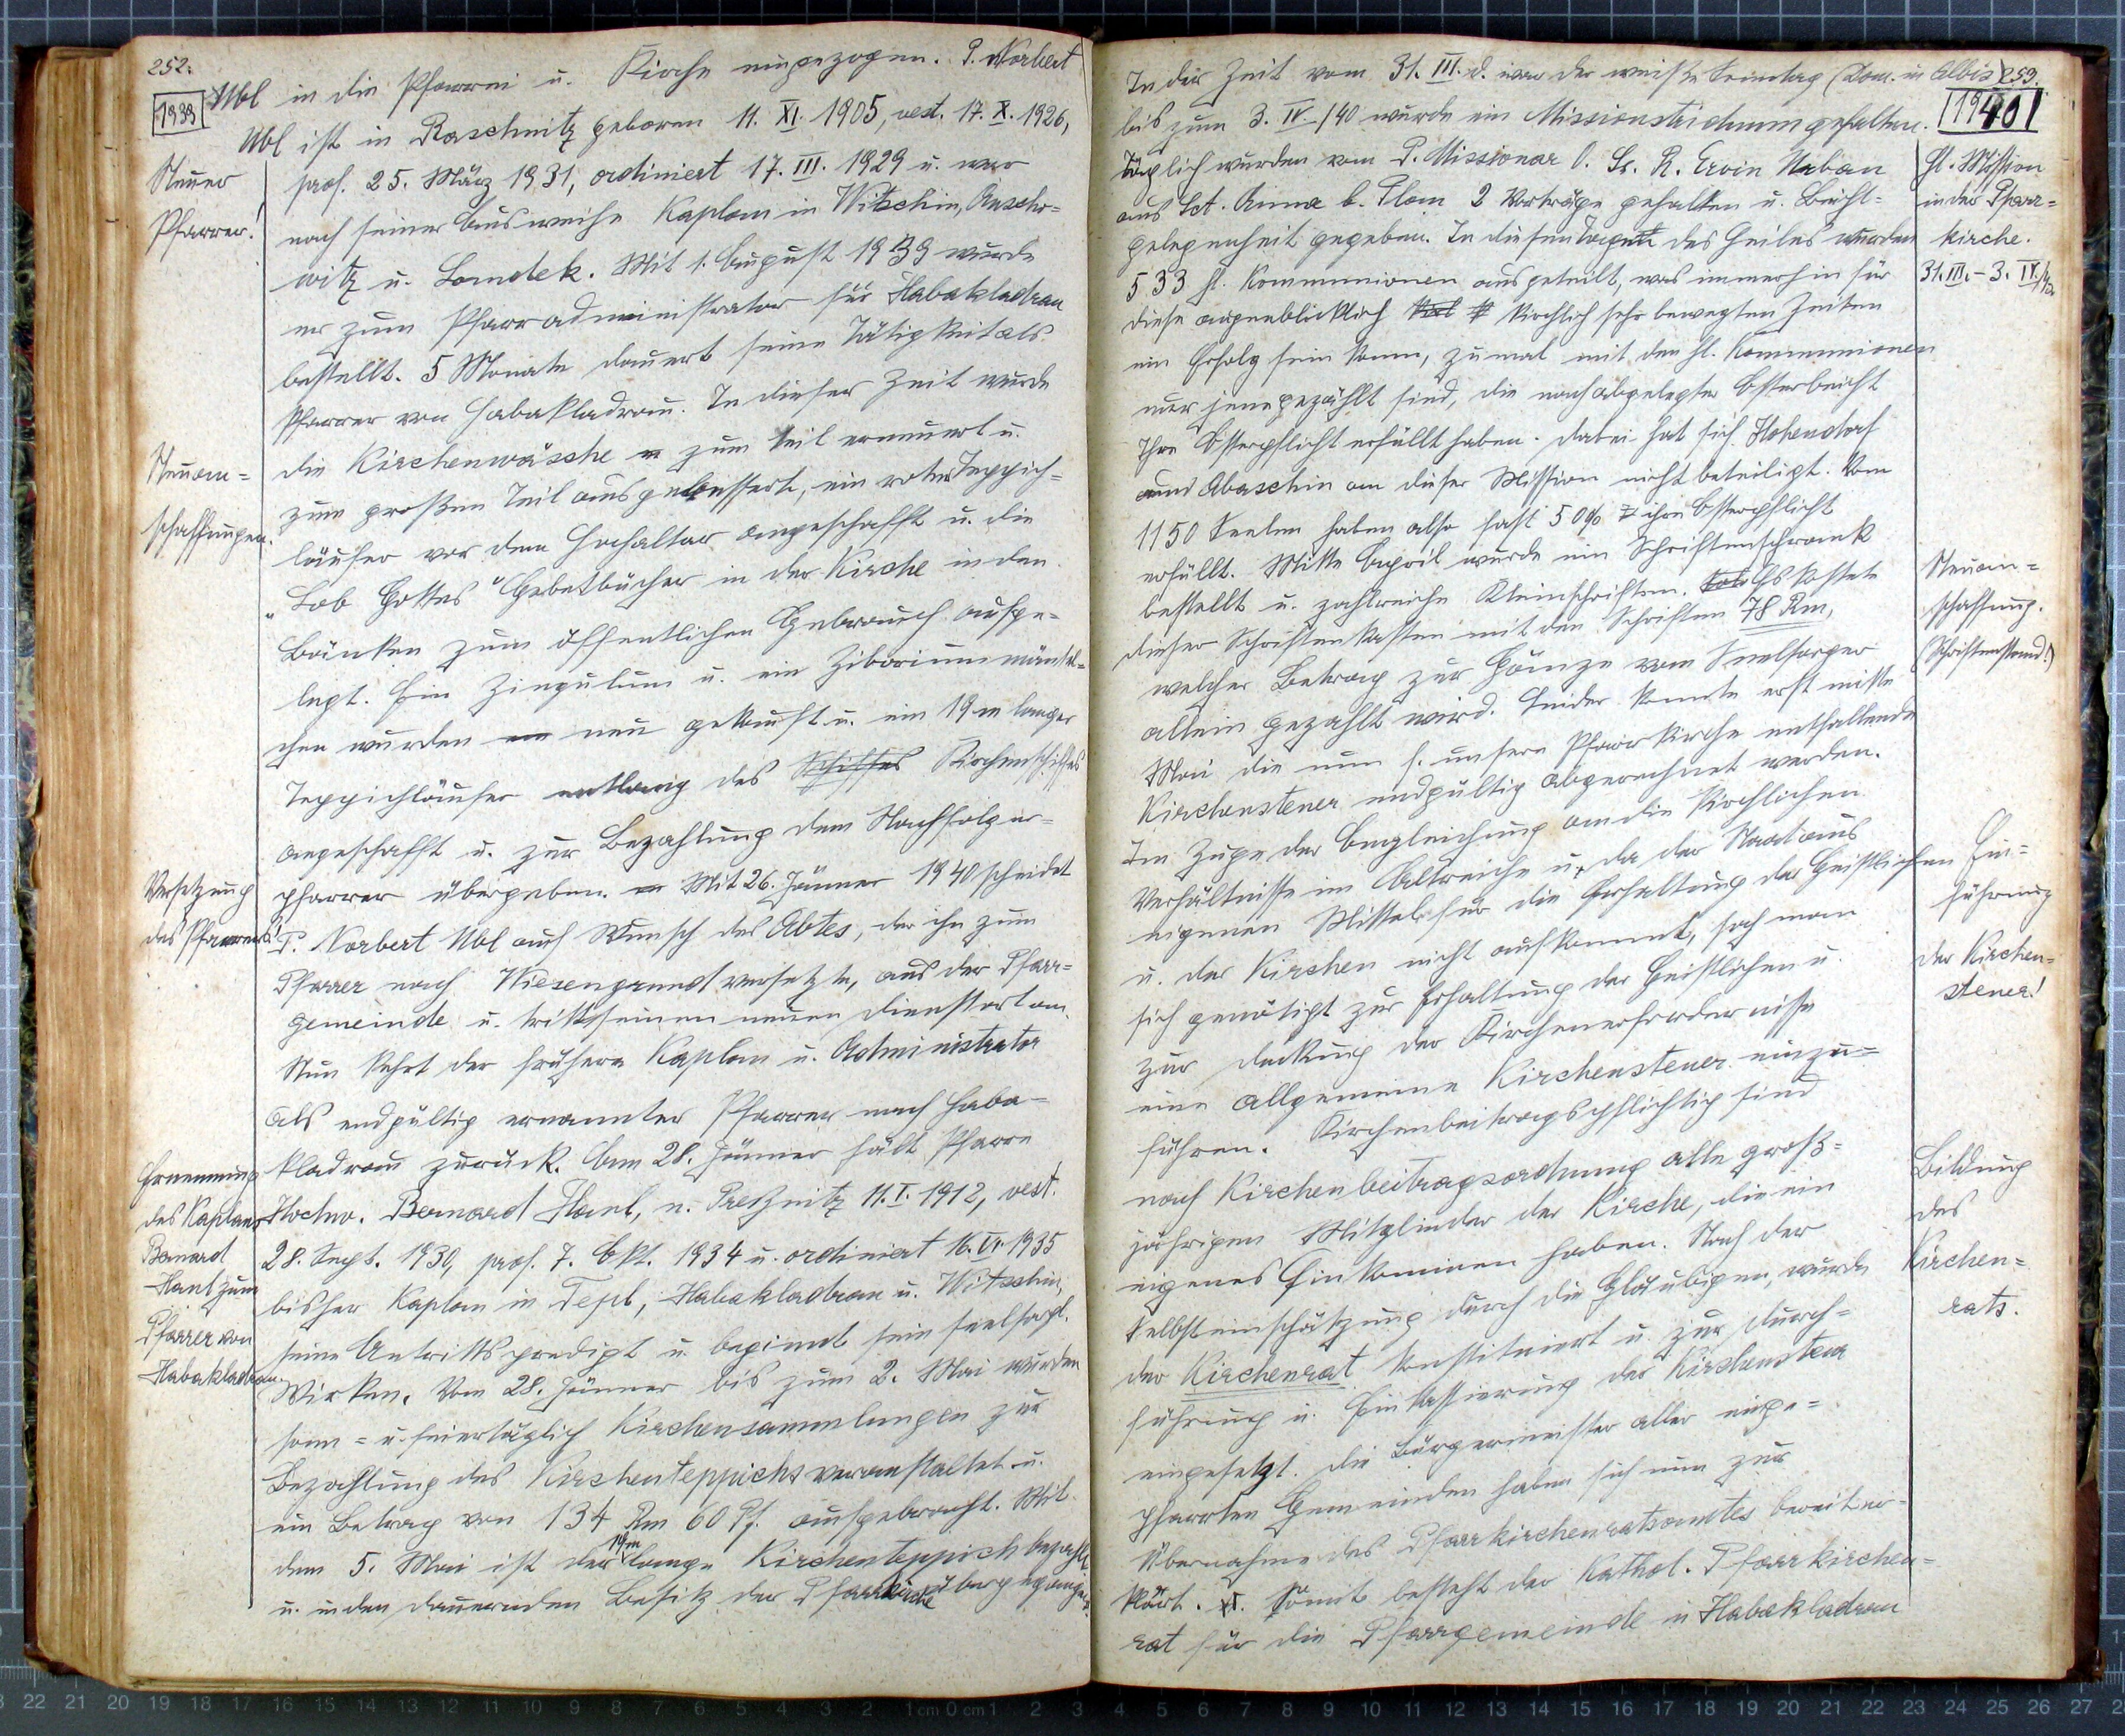 252.
1939
Ubl in die Pfarrei u. Kirche eingezogen. P. Norbert
Ubl ist in Raschnitz geboren 11. XI. 1905, vest. 17. X. 1926,
Neuer
Pfarrer!
prof. 25. März 1931, ordiniert 17. III. 1929 u. war
nach seiner Ausweihe Kaplan in Witschin, Auscho=
witz u. Landek. Mit 1. August 1939 wurde
er zum Pfarradministrator für Habakladrau
bestellt. 5 Monate dauert seine Tätigkeit als
Pfarrer von Habakladrau. In dieser Zeit wurde
Neuan=
schaffungen.
die Kirchenwäsche zum Teil erneuert u.
zum großen Teil ausgebessert, ein roter Teppich=
läufer vor dem Hochaltar angeschafft u. die
"Lob Gottes" Gebetbücher in der Kirche in den
Bänken zum öffentlichen Gebrauch aufge=
legt. Ein Zingulum u. ein Ziboriummäntel=
chen wurden neu gekauft u. ein 19 m langer
Teppichläufer entlang des Schiffes Kirchenschiffes
angeschafft u. zur Bezahlung dem Nachfolger=
Versetzung
des Pfarrers!
pfarrer übergeben. Mit 26. Jänner 1940 scheidet
P. Norbert Ubl auf Wunsch des Abtes, der ihn zum
Pfarrer nach Wiesengrund versetzte, aus der Pfarr=
gemeinde u. tritt seinen neuen Dienstort an.
Nun kehrt der frühere Kaplan u. Administrator
als endgültig ernannter Pfarrer nach Haba=
Ernennung
des Kaplans
Bernard
Hanl zum
Pfarrer von
Habakladrau.
kladrau zurück. Am 28. Jänner hält Pfarrer
Hochw. Bernard Hanl, n. Preßnitz 11. I. 1912, vest.
28. Sept. 1930, prof. 7. Okt. 1934 u. ordiniert 16. VI. 1935
bisher Kaplan in Tepl, Habakladrau u. Witschin,
seine Antrittspredigt u. beginnt sein seelsorgl.
Wirken. Vom 28. Jänner bis zum 2. Mai wurden
sonn= u. feiertäglich Kirchensammlungen zur
Bezahlung des Kirchenteppichs veranstaltet u.
ein Betrag von 134 Rm 60 Pf. aufgebracht. Mit
dem 5. Mai ist der 19m lange Kirchenteppich bezahlt
u. in den dauernden Besitz der Pfarrkirche übergegangen.
253.
1940!
In der Zeit vom 31. III. d. war der weiße Sonntag (Dom. in Albis)
bis zum 3. IV./40 wurde ein Missionstriduum gehalten.
hl. Mission
in der Pfarr=
kirche.
31. III. – 3. IV./40
Täglich wurden vom P. Missionar O. Sr. R. Ervin Urban
aus Sct. Anna b. Plan 2 Vorträge gehalten u. Beicht=
gelegenheit gegeben. In diesen Tagen des Heiles wurden
533 hl. Kommunionen ausgeteilt, was immerhin für
diese augenblicklich kirchlich sehr bewegten Zeiten
ein Erfolg sein kann, zumal mit den hl. Kommunionen
nur jene gezählt sind, die nach abgelegter Osterbeicht
Ihre Osterpflicht erfüllt haben. Dabei hat sich Hohendorf
und Abaschin an dieser Mission nicht beteiligt. Von
1150 Seelen haben also fast 50% ihre Osterpflicht
erfüllt. Mitte April wurde ein Schriftenschrank
Neuan=
schaffung.
(Schriftenstand!)
bestellt u. zahlreiche Kleinschriften. Es kostete
dieser Schriftenkasten mit den Schriften 78 Rm,
welcher Betrag zur Gänze vom Seelsorger
allein gezahlt wird. Leider konnte erst mitte
Mai die nun f. unsere Pfarrkirche entfallende
Kirchensteuer endgültig abgerechnet werden.
Im Zuge der Angleichung an die kirchlichen
Verhältnisse im Altreiche u. da der Staat aus
Ein=
führung
der Kirchen=
steuer!
eigenen Mitteln für die Erhaltung der Geistlichen
u. der Kirchen nicht aufkommt, sah man
sich genötigt zur Erhaltung der Geistlichen u.
zur Deckung der Kirchenerfordernisse
eine allgemeine Kirchensteuer einzu=
führen. Kirchenbeitragspflichtig sind
nach Kirchenbeitragsordnung alle groß=
Bildung
des
Kirchen=
rats.
jährigen Mitglieder der Kirche, die ein
eigenes Einkommen haben. Nach der
Selbsteinschätzung durch die Gläubigen, wurde
der Kirchenrat konstituiert u. zur Durch=
führung u. Einkassierung der Kirchensteuer
eingesetzt. Die Bürgermeister aller einge=
pfarrten Gemeinden haben sich nun zur
Übernahme des Pfarrkirchenratsamtes bereit er=
klärt. Somit besteht der Kathol. Pfarrkirchen=
rat für die Pfarrgemeinde in Habakladrau